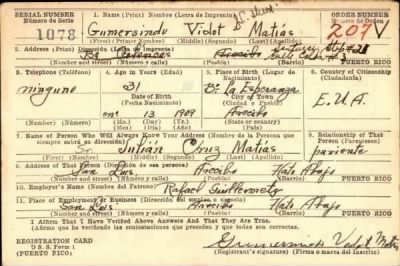 SERIAL NUMBER 1. NAME (Print) Nombre (Letra de Imprenta) ORDER NUMBER
Número de Serie Número de Orden
1078 Gumersindo Vidot Matías 207
(First) (Primer Nombre) (Middle) (Segundo) (Last) (Apellido)
2. ADDRESS (Print) Dirección (Letra de Imprenta)
Bo Arecibo
(Number and street) (Número y calle) (Town) (Pueblo) PUERTO RICO
3. TELEPHONE (Teléfono) 4. AGE IN YEARS (Edad) 5. PLACE OF BIRTH (Lugar de Nacimiento) 6. COUNTRY OF CITIZENSHIP (Ciudadanía)
ninguno 31 Bo La Esperanza
DATE OF BIRTH (Fecha Nacimiento) (City or Town) (Ciudad o Pueblo) E.U.A.
13 1909 Arecibo
(Number) (Número) (Mo.) (Day) (Yr.)
7. NAME OF PERSON WHO WILL ALWAYS KNOW YOUR ADDRESS (Nombre de la Persona que siempre sabrá su dirección) 8. RELATIONSHIP OF THAT PERSON (Parentesco)
Sr. Julián Cruz Matías pariente
(First) (Primero) (Middle) (Segundo) (Last) (Apellido)
9. ADDRESS OF THAT PERSON (Dirección de esa persona)
San Luis Arecibo Hato Abajo
(Number and street) (Número y calle) (Town) (Pueblo) PUERTO RICO
10. EMPLOYER'S NAME (Nombre del Patrono)
Rafael
11. PLACE OF EMPLOYMENT OR BUSINESS (Dirección del empleo o negocio)
San Luis Arecibo Hato Abajo
(Number and street) (Número y calle) (Town) (Pueblo) PUERTO RICO
I AFFIRM THAT I HAVE VERIFIED ABOVE ANSWERS AND THAT THEY ARE TRUE.
Afirmo que he verificado las contestaciones precedentes y que todas son correctas.
REGISTRATION CARD Gumersindo Vidot Matías
D. S. S. Form 1
PUERTO RICO (Registrant's signature) (Firma o marca del inscrito)